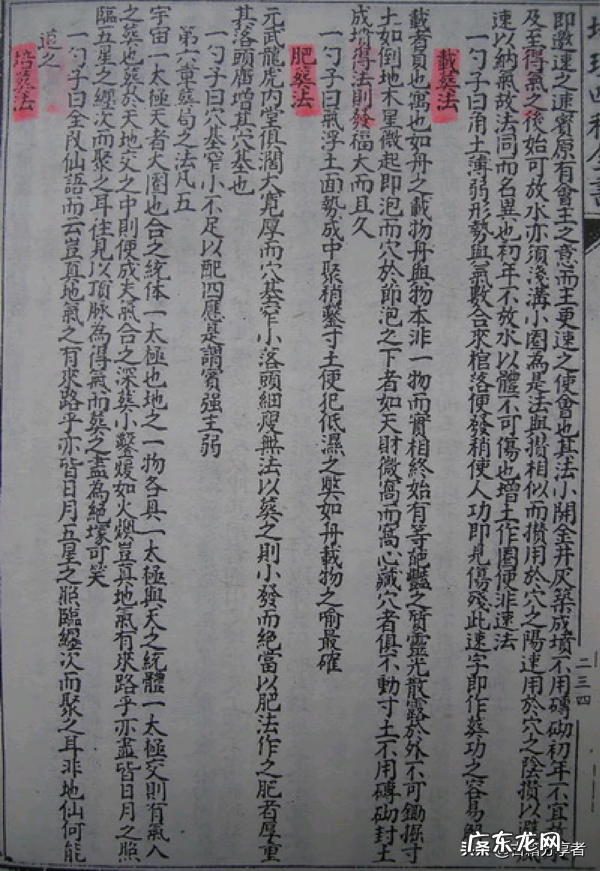 即邀速之速賓原有會主之意而主更速之使會也其法小開金井灰築成墳不用磚砌初年不宜放
及至得氣之後始可放水亦須淺溝小圈為是法與攢相似而攢用於穴之陽速用於穴之陰攢以
速以納氣故法同而名異也初年不放水以體不可傷也增土作圈便非速法
一勺子曰角土薄弱形勢與氣數合來棺落便發稍使人功即見傷殘此速字即作葬功之容易
載葬法
載者負也寓也如舟之載物舟與物本非一物而實相終始有等艷之質靈光散露於外不可鋤掘寸
土如倒地木星微起即泡而穴於節泡之下者如天財微窩而窩心藏穴者俱不動寸土不用磚砌封土
成墳得法則發福大而且久
一勺子曰氣浮土面勢成中聚稍鑿寸土便犯低濕之弊如舟載物之喻最確
肥葬法
元武龍虎內堂俱濶大寬厚而穴基窄小落頭細瘦無法以葬之則小發而絕當以肥法作之肥者厚重
其落頭廣增其穴基也
一勺子曰穴基窄小不足以配四應是謂賓強主弱
第六章葬局之法凡五
宇宙一太極天者大圈也合之統体一太極也地之一物各具一太極與天之統體一太極交則有氣人
之葬也葬於天地交之中則便成夫氣合之深葬小鑿煖如火煙豈真地氣有來路乎亦盡皆日月之照
臨五星之纏次而聚之耳往見以頂脉為得氣而葬之盡為絕塚可笑
一勺子曰全段仙語而云豈真地氣之有來路乎亦皆日月五星之照臨纏次而聚之耳非地仙何能
道之
培葬法
二三四
地理四秘全書
头条 @古籍分享者
广东龙网